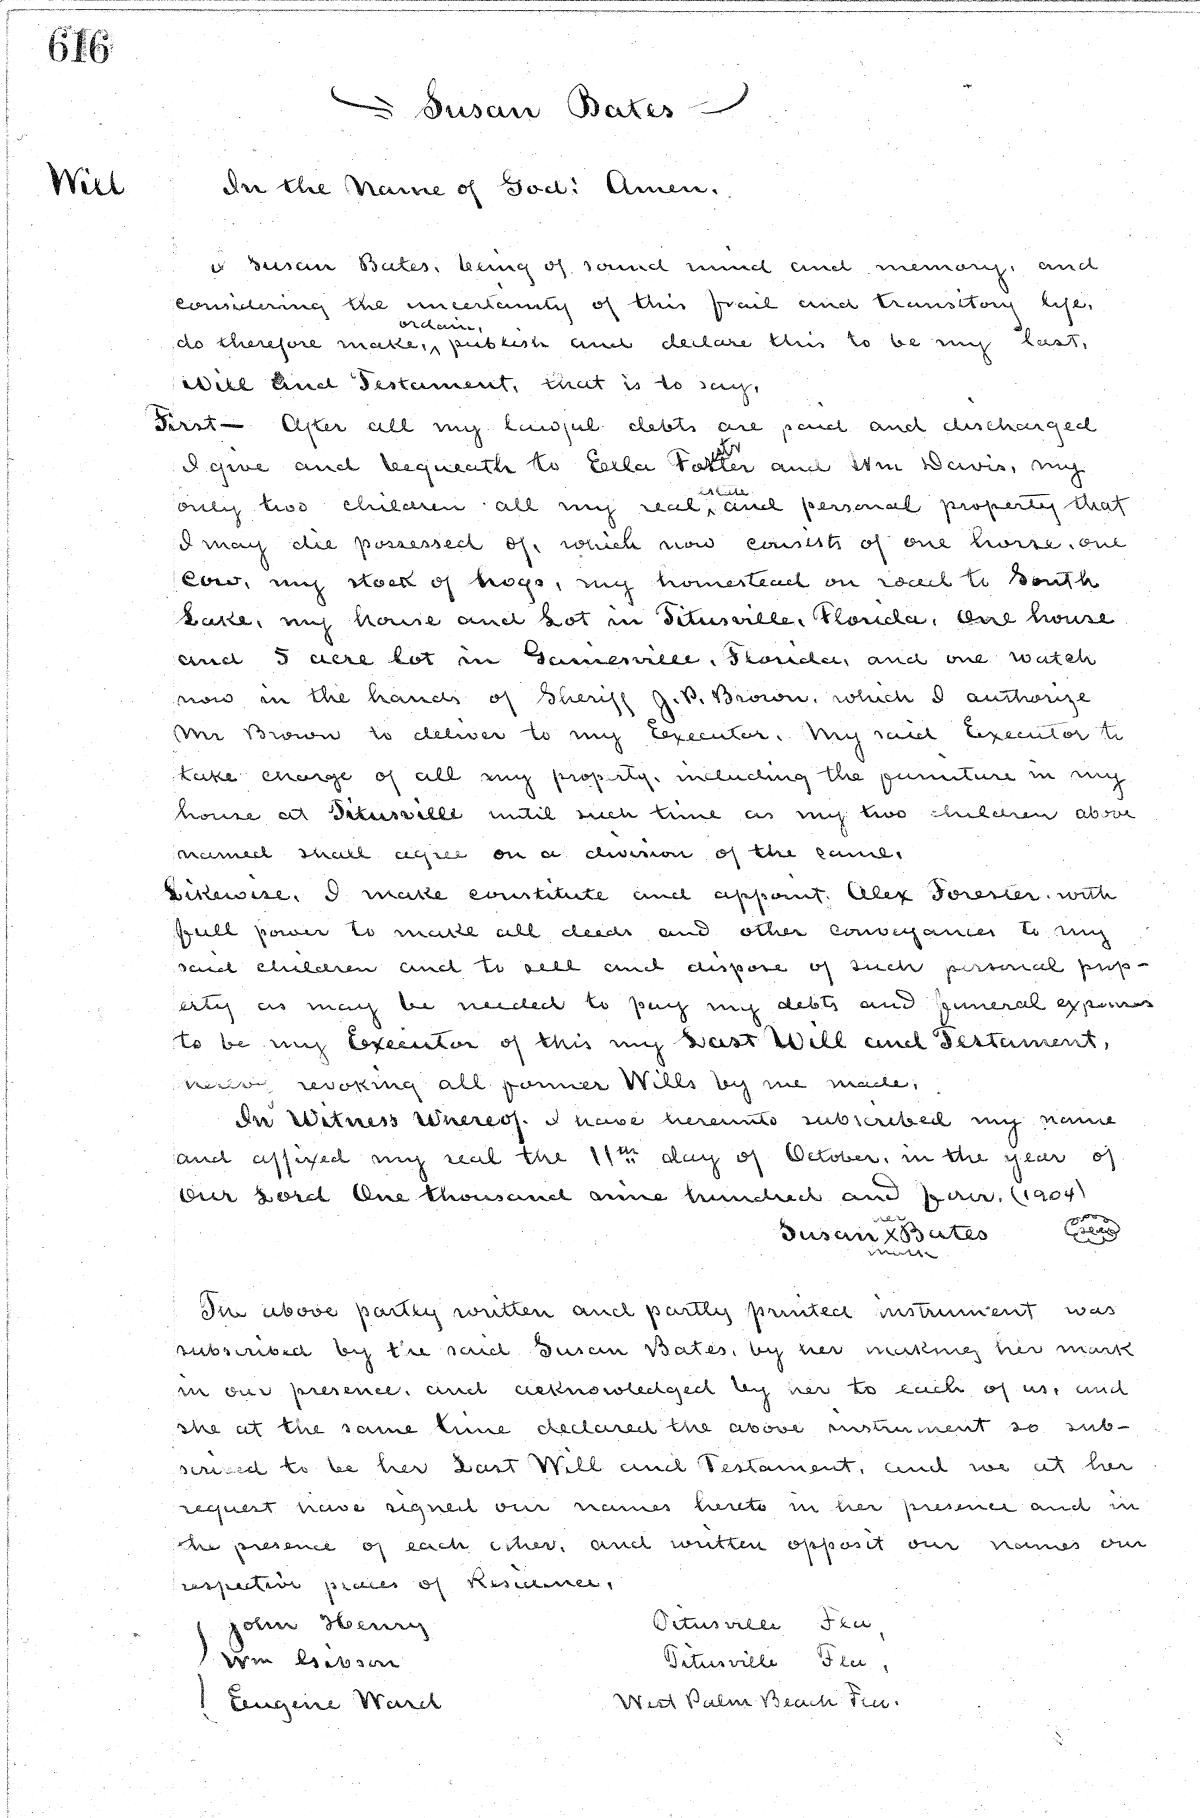 616
Susan Bates
Will In the Name of God: Amen.
I Susan Bates, being of sound mind and memory, and
considering the uncertainty of this frail and transitory life,
do therefore make, ordain, publish and declare this to be my last,
Will and Testament, that is to say,
First— After all my lawful debts are paid and discharged
I give and bequeath to Ella Foster and Wm Davis, my
only two children all my real estate and personal property that
I may die possessed of, which now consists of one horse, one
cow, my stock of hogs, my homestead on road to South
Lake, my house and Lot in Titusville, Florida, One house
and 5 acre lot in Gainesville, Florida, and one watch
now in the hands of Sheriff J.P. Brown, which I authorize
Mr Brown to deliver to my Executor. My said Executor to
take charge of all my property, including the furniture in my
house at Titusville until such time as my two children above
named shall agree on a division of the same.
Likewise, I make constitute and appoint Alex Forester, with
full power to make all deeds and other conveyances to my
said children and to sell and dispose of such personal prop-
erty as may be needed to pay my debts and funeral expenses
to be my Executor of this my Last Will and Testament,
hereby revoking all former Wills by me made.
In Witness Whereof, I have hereunto subscribed my name
and affixed my seal the 11th day of October, in the year of
Our Lord One thousand nine hundred and four. (1904)
her
Susan X Bates (seal)
mark
The above partly written and partly printed instrument was
subscribed by the said Susan Bates, by her making her mark
in our presence, and acknowledged by her to each of us, and
she at the same time declared the above instrument so sub-
scribed to be her Last Will and Testament, and we at her
request have signed our names hereto in her presence and in
the presence of each other, and written opposit our names our
respective places of Residence.
John Henry Titusville Fla,
Wm Gibson Titusville Fla,
Eugene Ward West Palm Beach Fla.